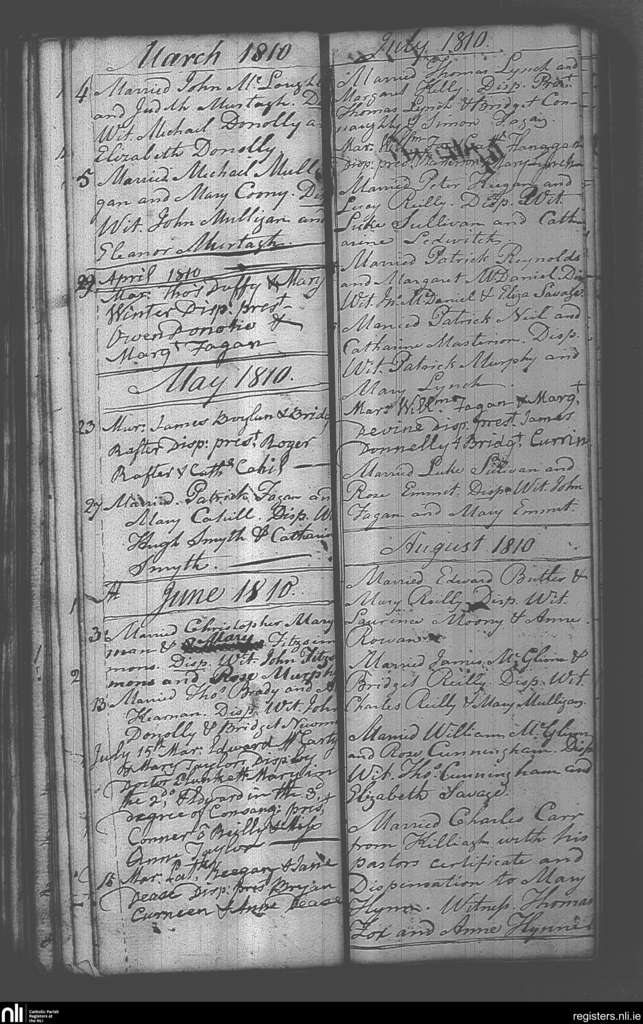 March 1810
4 Married John McLough
and Judith Murtagh. D
Wit. Michael Donolly a
Elizabeth Donolly
5 Married Michael Mull
gan and Mary Coony. Di
Wit. John Mulligan and
Eleanor Murtagh
29 April 1810
Mar: Thos Duffy & Mary
Winter Disp: prest
Owen Donohoe &
Margt Fagan
May 1810.
23 Mar: James Boylan & Bridg
Rafter Disp: prest. Roger
Rafter & Cathe Cahil
27 Married. Patrick Fagan an
Mary Cahill. Disp. W
Hugh Smyth & Catharin
Smyth.
June 1810.
3 Married Christopher Mary
man & Mary Fitzsim
mons. Disp. Wit. John Fitzs
mons and Rose Murph
13 Married Thos Brady and
Heaman. Disp. Wit. John
Donolly & Bridget Newm
July 15th Mar: Edward McCarty
& Mary Taylor, Disp by
Doctor Plunkett Mary in
the 2d & Edward in the 3d
degree of Consang: prest
Conner O Reilly & Miss
Anne Taylor
15 Mar: Patk Keegan & Jane
Dease Disp: prest Bryan
Curneen & Anne Dease
July 1810.
Married Thomas Lynch and
Margaret Kelly. Disp. Prest
Thomas Lynch & Bridget Con
naughty & Simon Fagan
Mar: Wm & Cath Hanagan
Disp: prest Mary Lynchan
Married Peter Keegan and
Lucy Reilly. Disp. Wit.
Luke Sullivan and Cath
arine Ledwitch
Married Patrick Reynolds
and Margaret McDaniel. Dis
Wit. McDaniel & Eliza Savage
Married Patrick Neil and
Catharine Masterson. Disp.
Wit. Patrick Murphy and
Mary Lynch
Mard Willm Fagan & Margt
Devine disp: prest. James
Donnelly & Bridgt Currin
Married Luke Sulivan and
Rose Emmet. Disp. Wit. John
Fagan and Mary Emmet
August 1810
Married Edward Butler &
Mary Reilly Disp. Wit.
Laurence Moony & Anne
Rowan
Married James McGlinn &
Bridget Reilly. Disp. Wit.
Charles Reilly & Mary Mulligan.
Married William McGlinn
and Rose Cunningham. Disp
Wit. Thos Cunningham and
Elizabeth Savage.
Married Charles Carr
from Killiagh with his
pastors certificate and
Dispensation to Mary
Flynn. Witness, Thomas
Fox and Anne Flynne
nli
Catholic Parish
Registers at
the NLI
registers.nli.ie